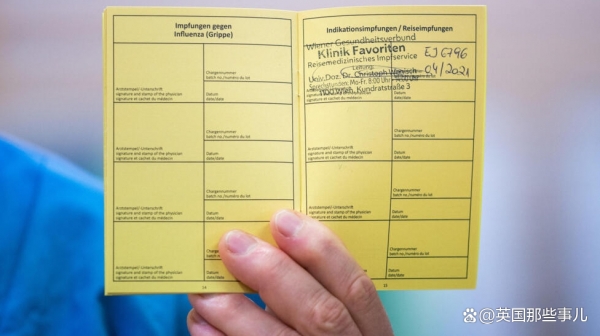 Impfungen gegen
Influenza (Grippe)
Chargennummer
batch no./numéro du lot
Arztstempel/-Unterschrift
signature and stamp of the physician
signature et cachet du médecin
Datum
date/date
Chargennummer
batch no./numéro du lot
Arztstempel/-Unterschrift
signature and stamp of the physician
signature et cachet du médecin
Datum
date/date
Chargennummer
batch no./numéro du lot
Arztstempel/-Unterschrift
signature and stamp of the physician
signature et cachet du médecin
Datum
date/date
Chargennummer
Arztstempel/-Unterschrift
signature and stamp of the physician
signature et cachet du médecin
Datum
14
Indikationsimpfungen / Reiseimpfungen
Wiener Gesundheitsverbund
Klinik Favoriten
Reisemedizinisches Impfservice
Leitung:
Univ.Doz. Dr. Christoph Wenisch
Sprechstunden: Mo-Fr. 8:00 Uhr
Kundratstraße 3
04/2021
Datum
date/date
Chargennummer
batch no./numéro du lot
Arztstempel/-Unterschrift
signature and stamp of the physician
signature et cachet du médecin
Datum
date/date
Chargennummer
batch no./numéro du lot
Arztstempel/-Unterschrift
signature and stamp of the physician
signature et cachet du médecin
Datum
date/date
Chargennummer
batch no./numéro du lot
signature and stamp of the physician
signature et cachet du médecin
Datum
date/date
15
@英国那些事儿